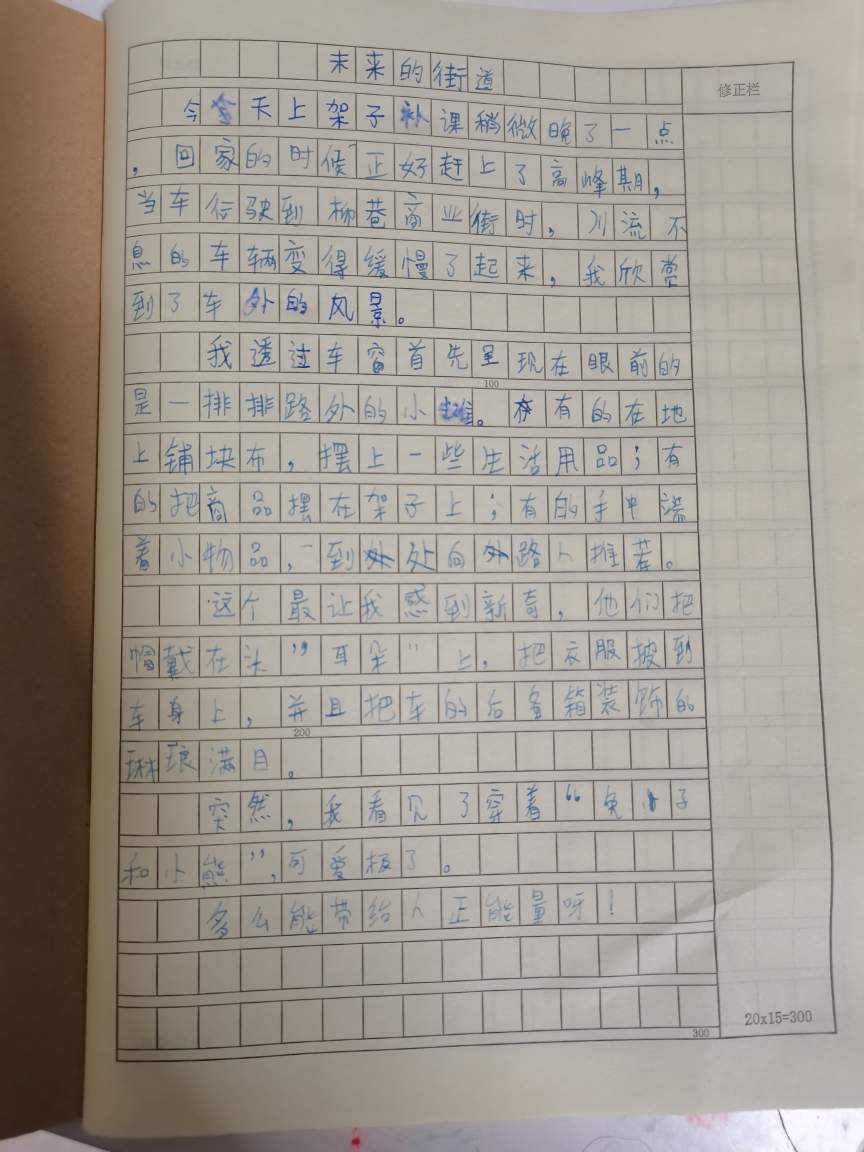 未来的街道
修正栏
今天上架子补课稍微晚了一点
，回家的时候正好赶上了高峰期，
当车行驶到柳巷商业街时，川流不
息的车辆变得缓慢了起来，我欣赏
到了车外的风景。
我透过车窗首先呈现在眼前的
100
是一排排路外的小摊。有的在地
上铺块布，摆上一些生活用品；有
的把商品摆在架子上；有的手中端
着小物品，到处向路人推荐。
这个最让我感到新奇，他们把
帽戴在头”耳朵"上，把衣服披到
车身上，并且把车的后备箱装饰的
200
琳琅满目。
突然，我看见了穿着“兔子
和小熊”，可爱极了。
多么能带给人正能量呀！
300
20x15=300